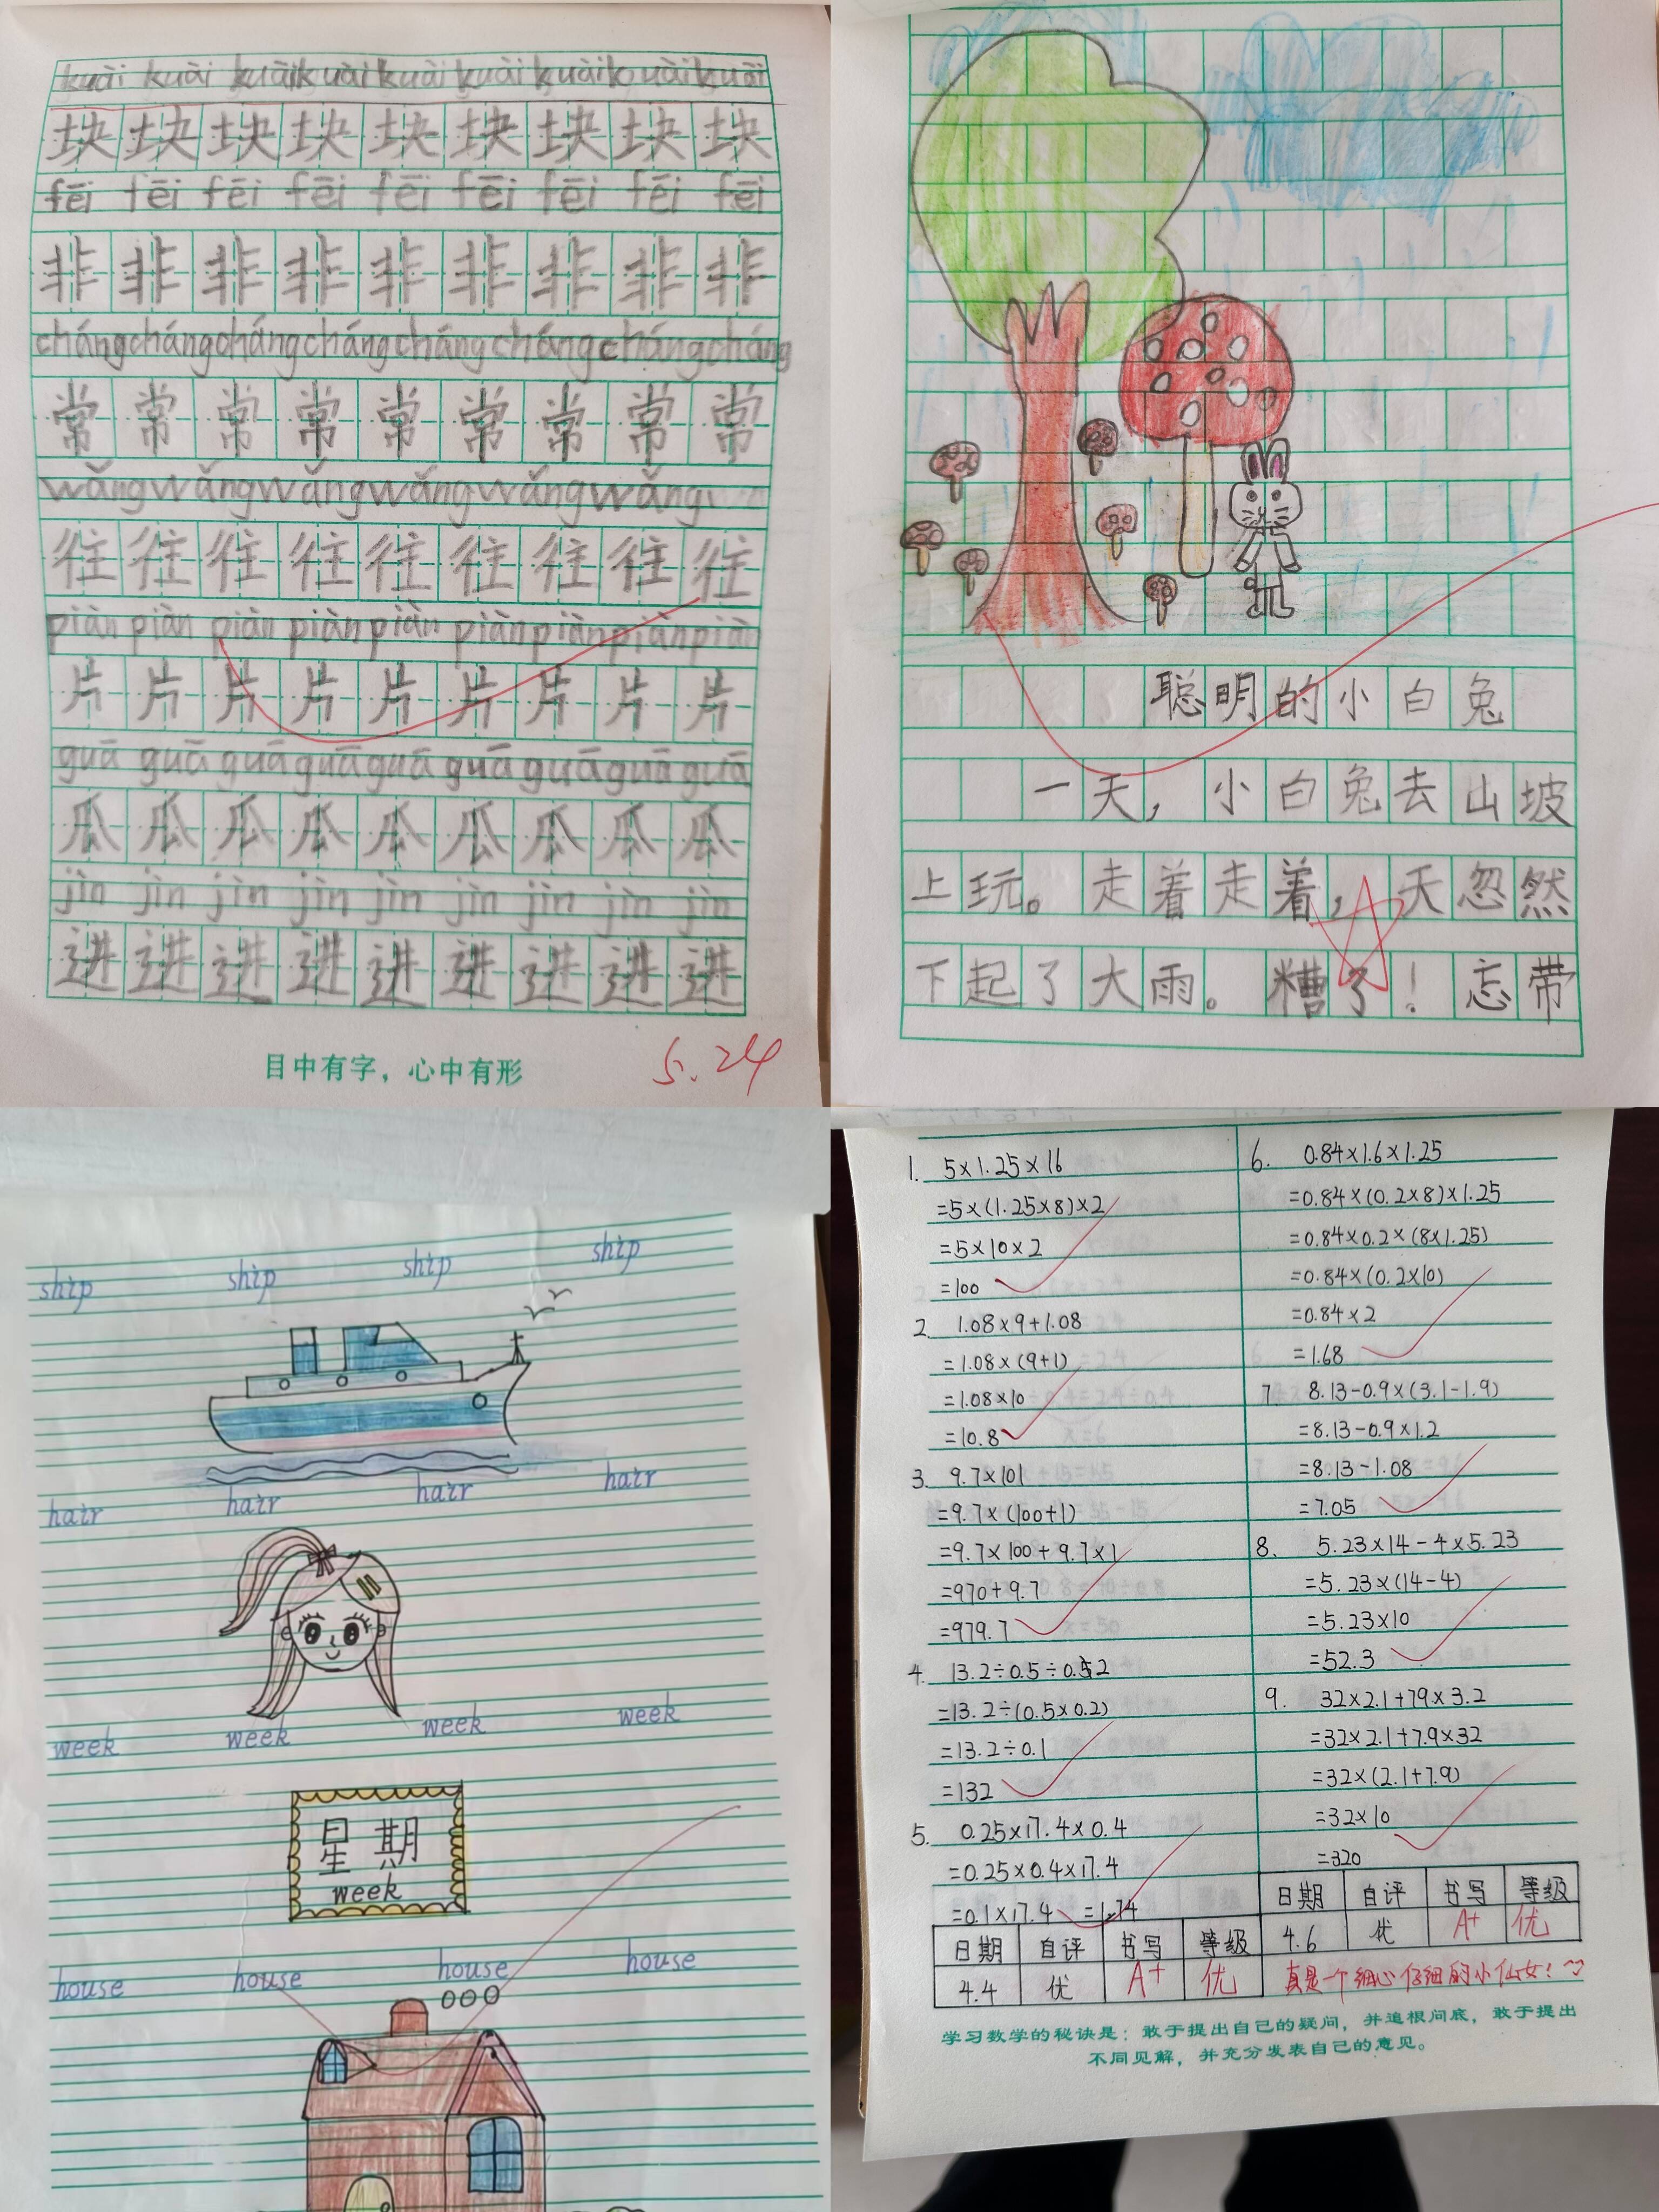 kuài kuài kuài kuài kuài kuài kuài kuài kuài
块 块 块 块 块 块 块 块 块
fēi fēi fēi fēi fēi fēi fēi fēi fēi
非 非 非 非 非 非 非 非 非
cháng cháng cháng cháng cháng cháng cháng cháng
常 常 常 常 常 常 常 常 常
wǎng wǎng wǎng wǎng wǎng wǎng
往 往 往 往 往 往 往 往 往
piàn piàn piàn piàn piàn piàn piàn piàn piàn
片 片 片 片 片 片 片 片 片
guā guā guā guā guā guā guā guā guā
瓜 瓜 瓜 瓜 瓜 瓜 瓜 瓜 瓜
jìn jìn jìn jìn jìn jìn jìn jìn jìn
进 进 进 进 进 进 进 进 进
目中有字，心中有形
5.24
聪明的小白兔
一天，小白兔去山坡
上玩。走着走着，天忽然
下起了大雨。糟了！忘带
ship ship ship ship
hair hair hair hair
week week week week
星期
week
house house house house
1. 5×1.25×16
=5×(1.25×8)×2
=5×10×2
=100
2. 1.08×9+1.08
=1.08×(9+1)
=1.08×10
=10.8
3. 9.7×101
=9.7×(100+1)
=9.7×100+9.7×1
=970+9.7
=979.7
4. 13.2÷0.5÷0.2
=13.2÷(0.5×0.2)
=13.2÷0.1
=132
5. 0.25×17.4×0.4
=0.25×0.4×17.4
=0.1×17.4 =1.74
日期 自评 书写 等级
4.4 优 A+ 优
6. 0.84×1.6×1.25
=0.84×(0.2×8)×1.25
=0.84×0.2×(8×1.25)
=0.84×(0.2×10)
=0.84×2
=1.68
7. 8.13-0.9×(3.1-1.9)
=8.13-0.9×1.2
=8.13-1.08
=7.05
8. 5.23×14-4×5.23
=5.23×(14-4)
=5.23×10
=52.3
9. 32×2.1+79×3.2
=32×2.1+7.9×32
=32×(2.1+7.9)
=32×10
=320
日期 自评 书写 等级
4.6 优 A+ 优
真是一个细心仔细的小仙女！
学习数学的秘诀是：敢于提出自己的疑问，并追根问底，敢于提出
不同见解，并充分发表自己的意见。